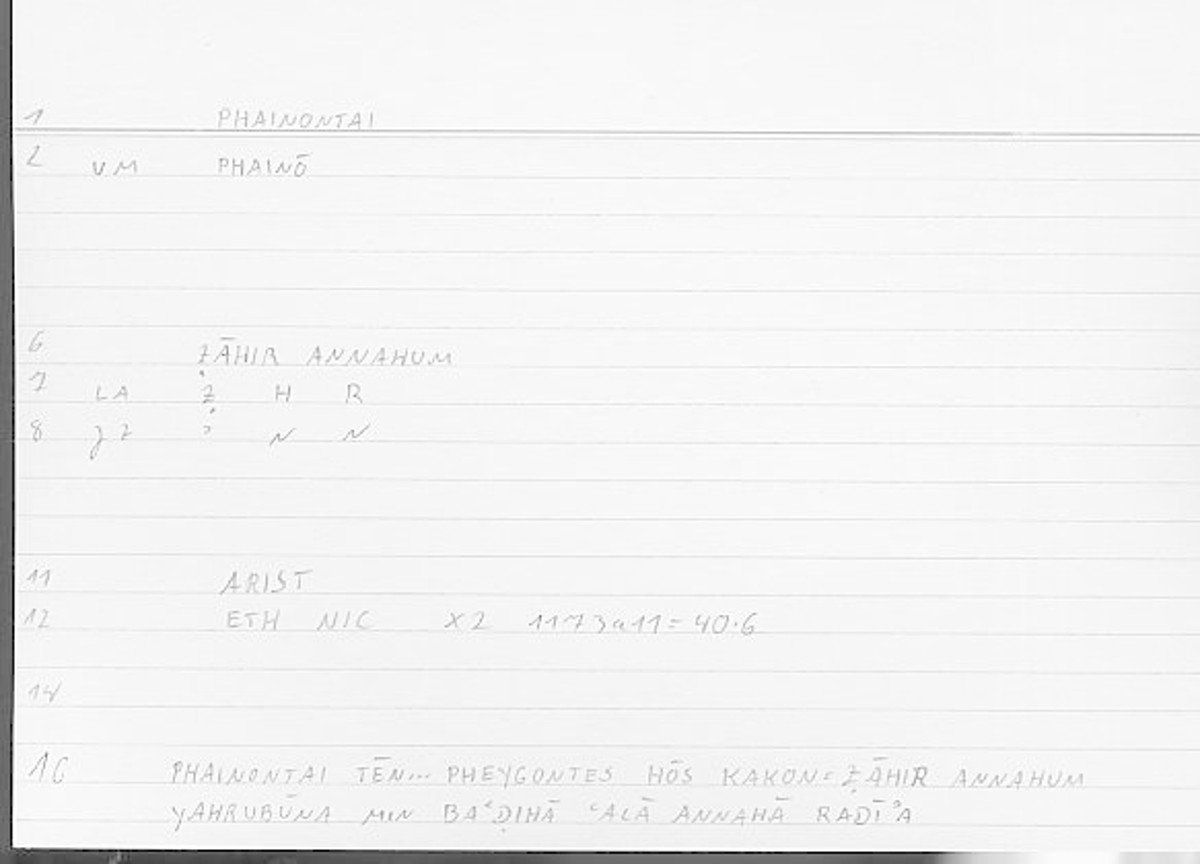 1 PHAINONTAI
2 VM PHAINŌ
6 ẒĀHIR ANNAHUM
7 LA Ẓ H R
8 ʾ N N
11 ARIST
12 ETH NIC X2 1173a11 = 40.6
14
16 PHAINONTAI TĒN... PHEYGONTES HŌS KAKON = ẒĀHIR ANNAHUM
YAHRUBŪNA MIN BAʿḌIHĀ ʿALĀ ANNAHĀ RADĪʾA